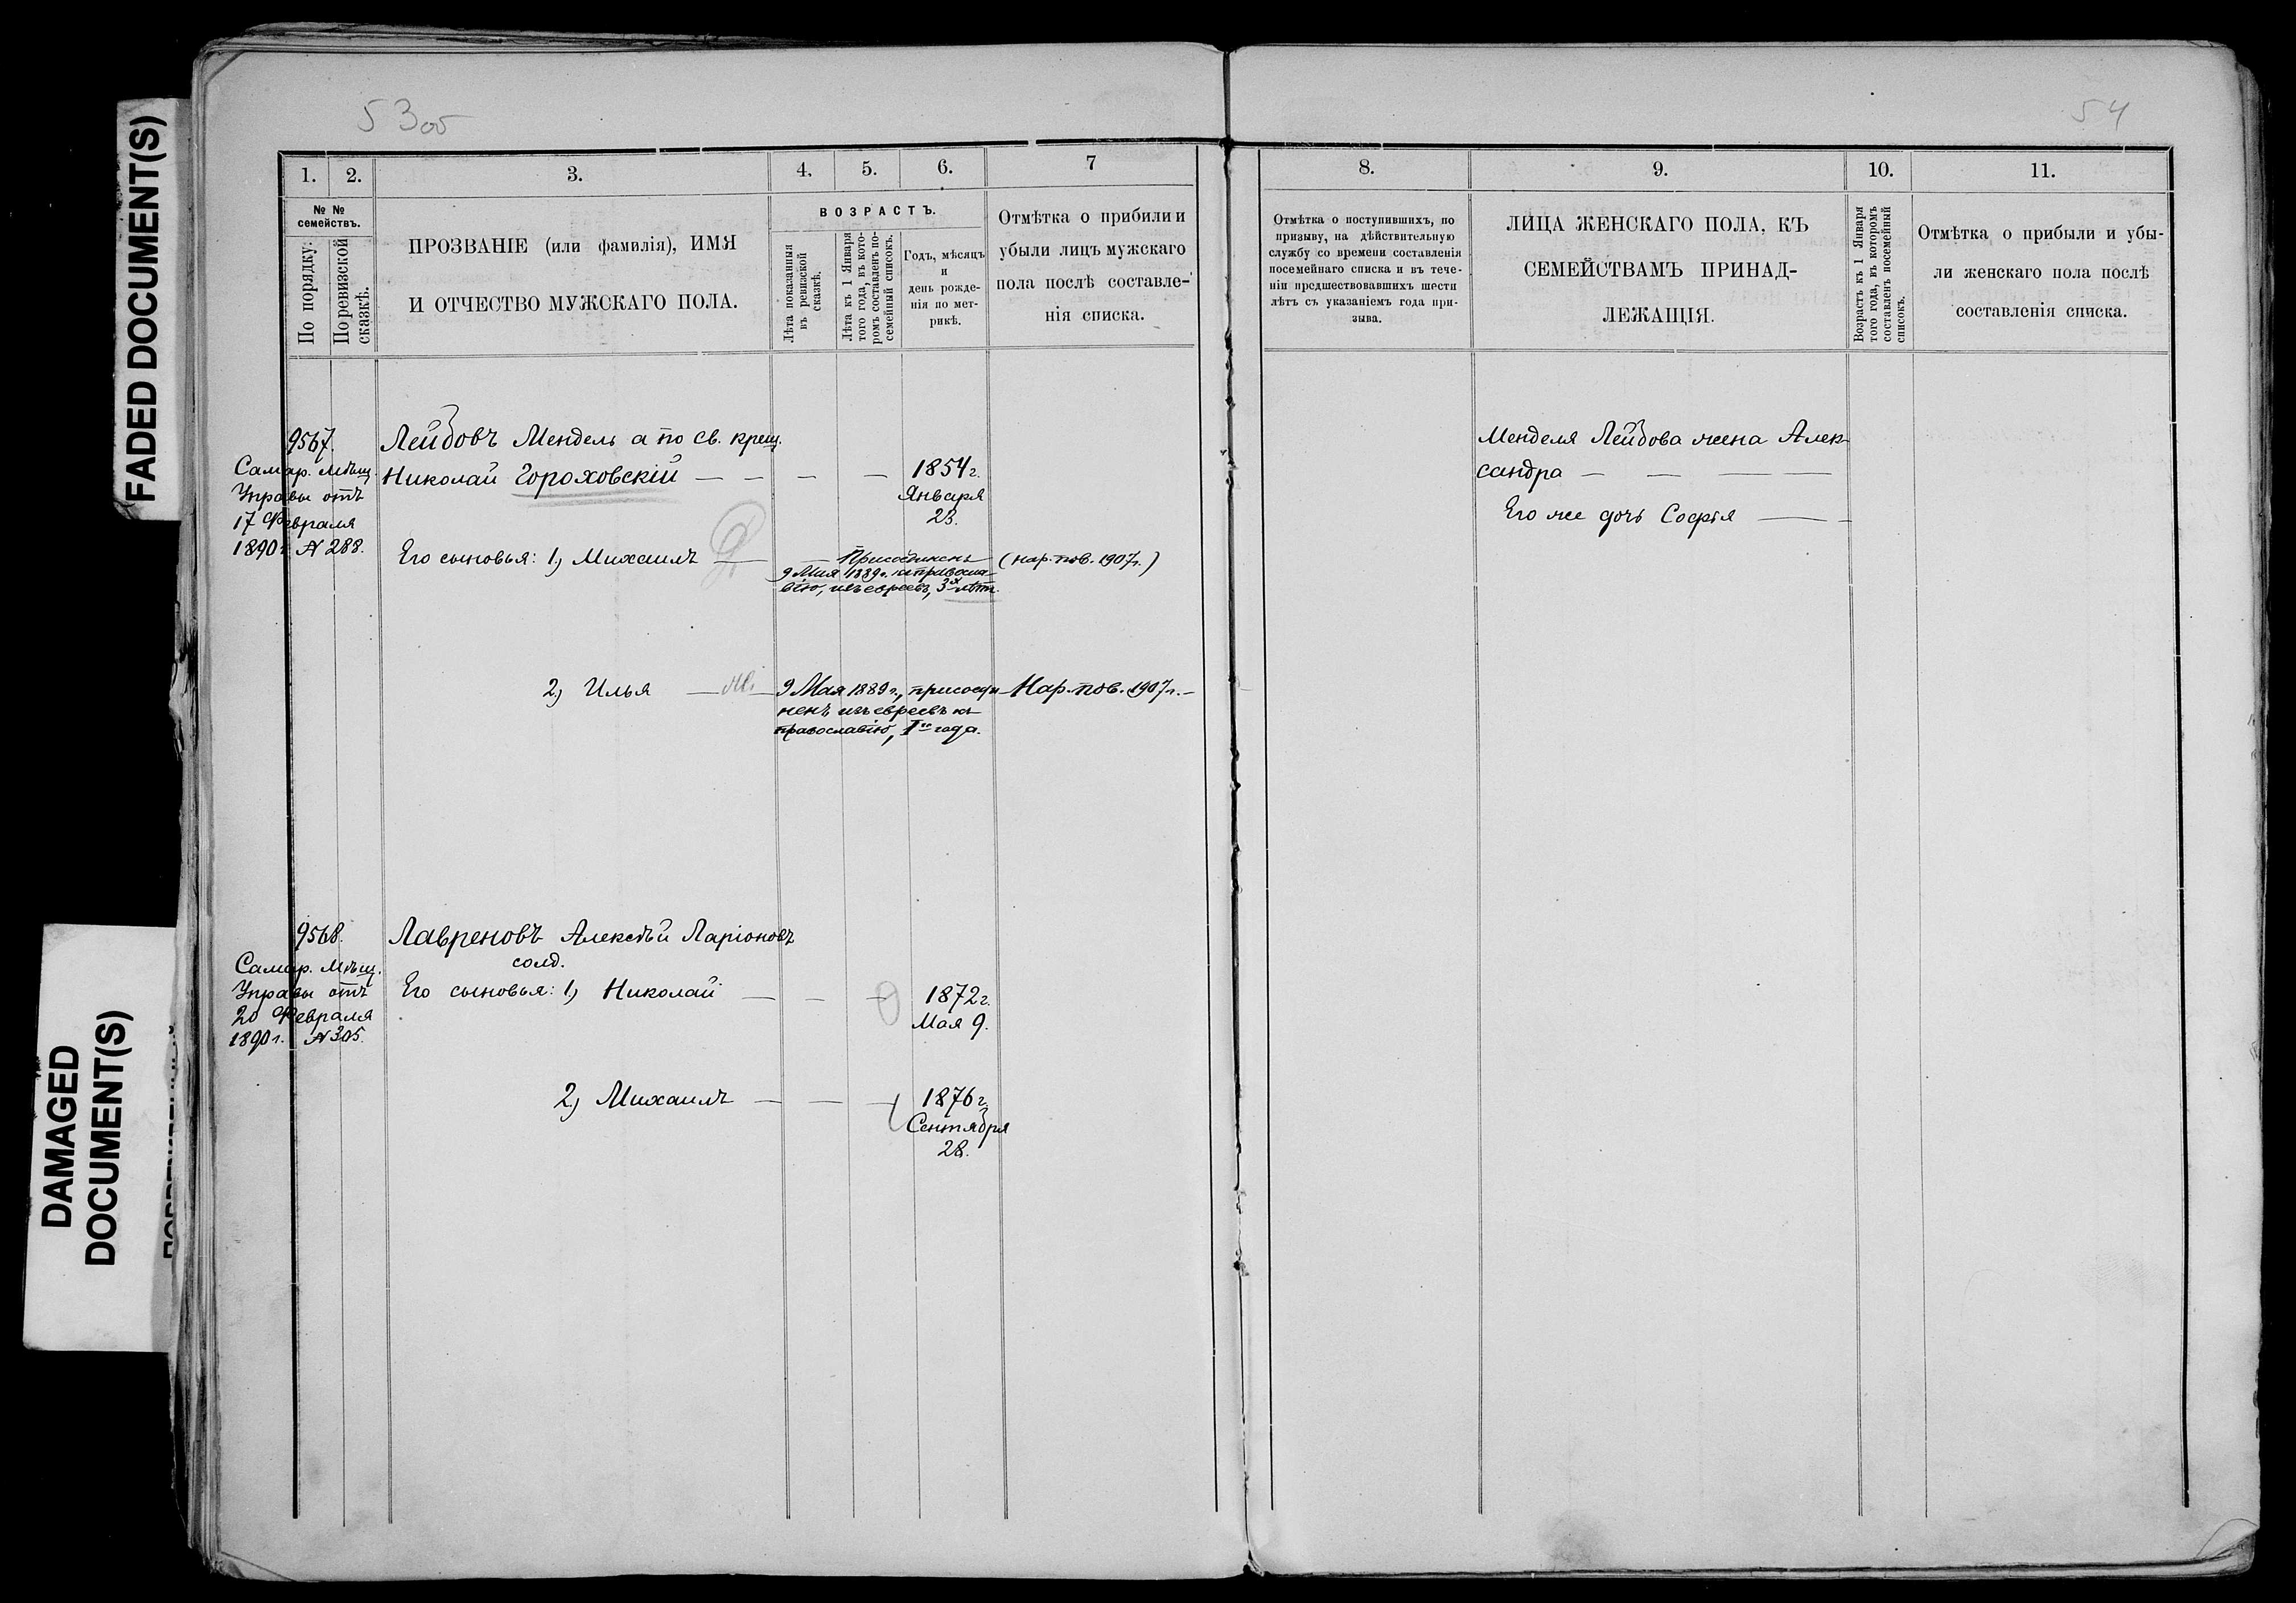 FADED DOCUMENT(S)
DAMAGED
DOCUMENT(S)
53об
1. 2. 3. 4. 5. 6. 7
№ №
семействъ.
По порядку.
По ревизской
сказкѣ.
ПРОЗВАНІЕ (или фамилія), ИМЯ
И ОТЧЕСТВО МУЖСКАГО ПОЛА.
ВОЗРАСТЪ.
Лѣта показанныя
въ ревизской
сказкѣ.
Лѣта къ 1 Января
того года, въ кото-
ромъ составленъ по-
семейный списокъ.
Годъ, мѣсяцъ
и
день рожде-
нія по мет-
рикѣ.
Отмѣтка о прибили и
убыли лицъ мужскаго
пола послѣ составле-
нія списка.
9567.
Самар. Мѣщ.
Управы отъ
17 Февраля
1890 г. № 288.
Лейбовъ Мендель а по св. крещ.
Николай Гороховскій — — — —
1854 г.
Января
23.
Его сыновья: 1) Михаилъ —
Присоединенъ
9 Мая 1889 г. къ правосла-
вію, изъ евреевъ, 3х лѣтъ.
(нар. пов. 1907 г.)
2) Илья —
9 Мая 1889 г., присоеди-
ненъ изъ евреевъ къ
православію, 1го года.
Нар. пов. 1907 г. —
9568.
Самар. Мѣщ.
Управы отъ
20 Февраля
1890 г. № 305.
Лавреновъ Алексѣй Ларіоновъ
солд.
Его сыновья: 1) Николай — — —
1872 г.
Мая 9.
2) Михаилъ — — —
1876 г.
Сентября
28.
54
8. 9. 10. 11.
Отмѣтка о поступившихъ, по
призыву, на дѣйствительную
службу со времени составленія
посемейнаго списка и въ тече-
ніи предшествовавшихъ шести
лѣтъ съ указаніемъ года при-
зыва.
ЛИЦА ЖЕНСКАГО ПОЛА, КЪ
СЕМЕЙСТВАМЪ ПРИНАД-
ЛЕЖАЩІЯ.
Возрастъ къ 1 Января
того года, въ которомъ
составленъ посемейный
списокъ.
Отмѣтка о прибыли и убы-
ли женскаго пола послѣ
составленія списка.
Менделя Лейбова жена Алек-
сандра — — — —
Его же дочь Софія — —